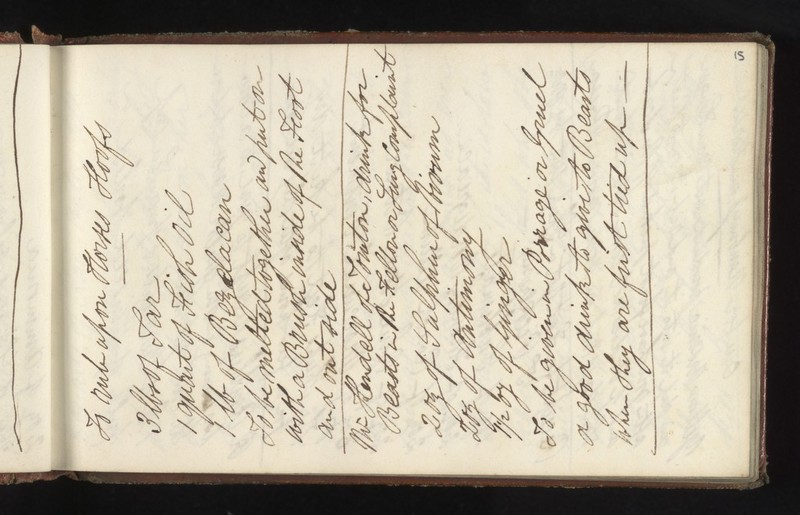 15
To rub upon Horses Hoofs
3 lbs of Tar
1 quart of Fish Oil
1 lb of
To be melted together and put on
with a Brush inside of the Foot
and out side
Mr Kendell of drink for
Beasts in the Fellon or Lung Complaint
2 oz of Sulphur of
2 oz of Antimony
1/2 oz of Ginger
To be given in Porrage or Gruel
a good drink to give to Beasts
when they are first tied up